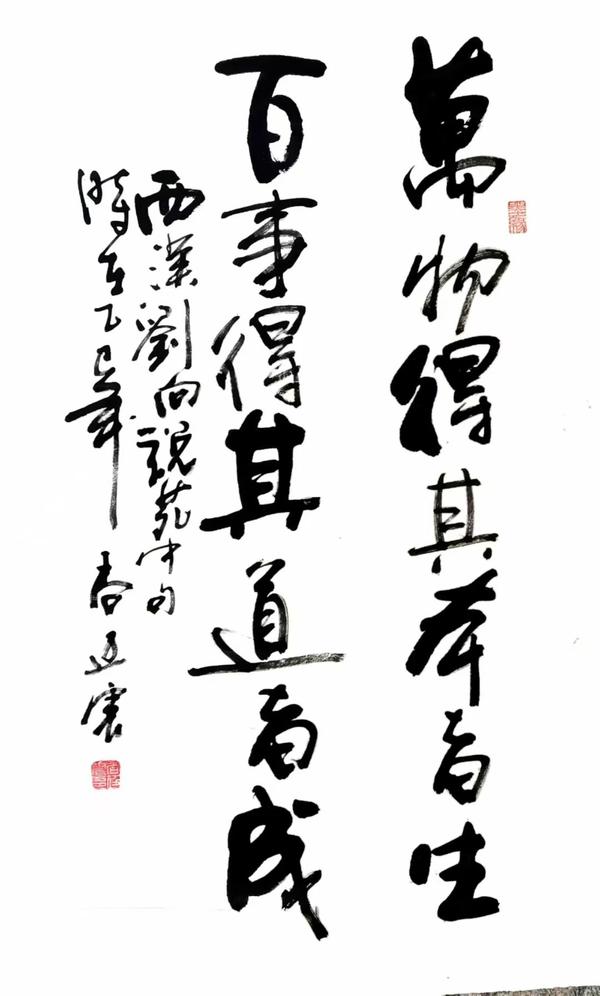 萬物得其本者生
百事得其道者成
西漢劉向說苑中句
時在乙巳年春